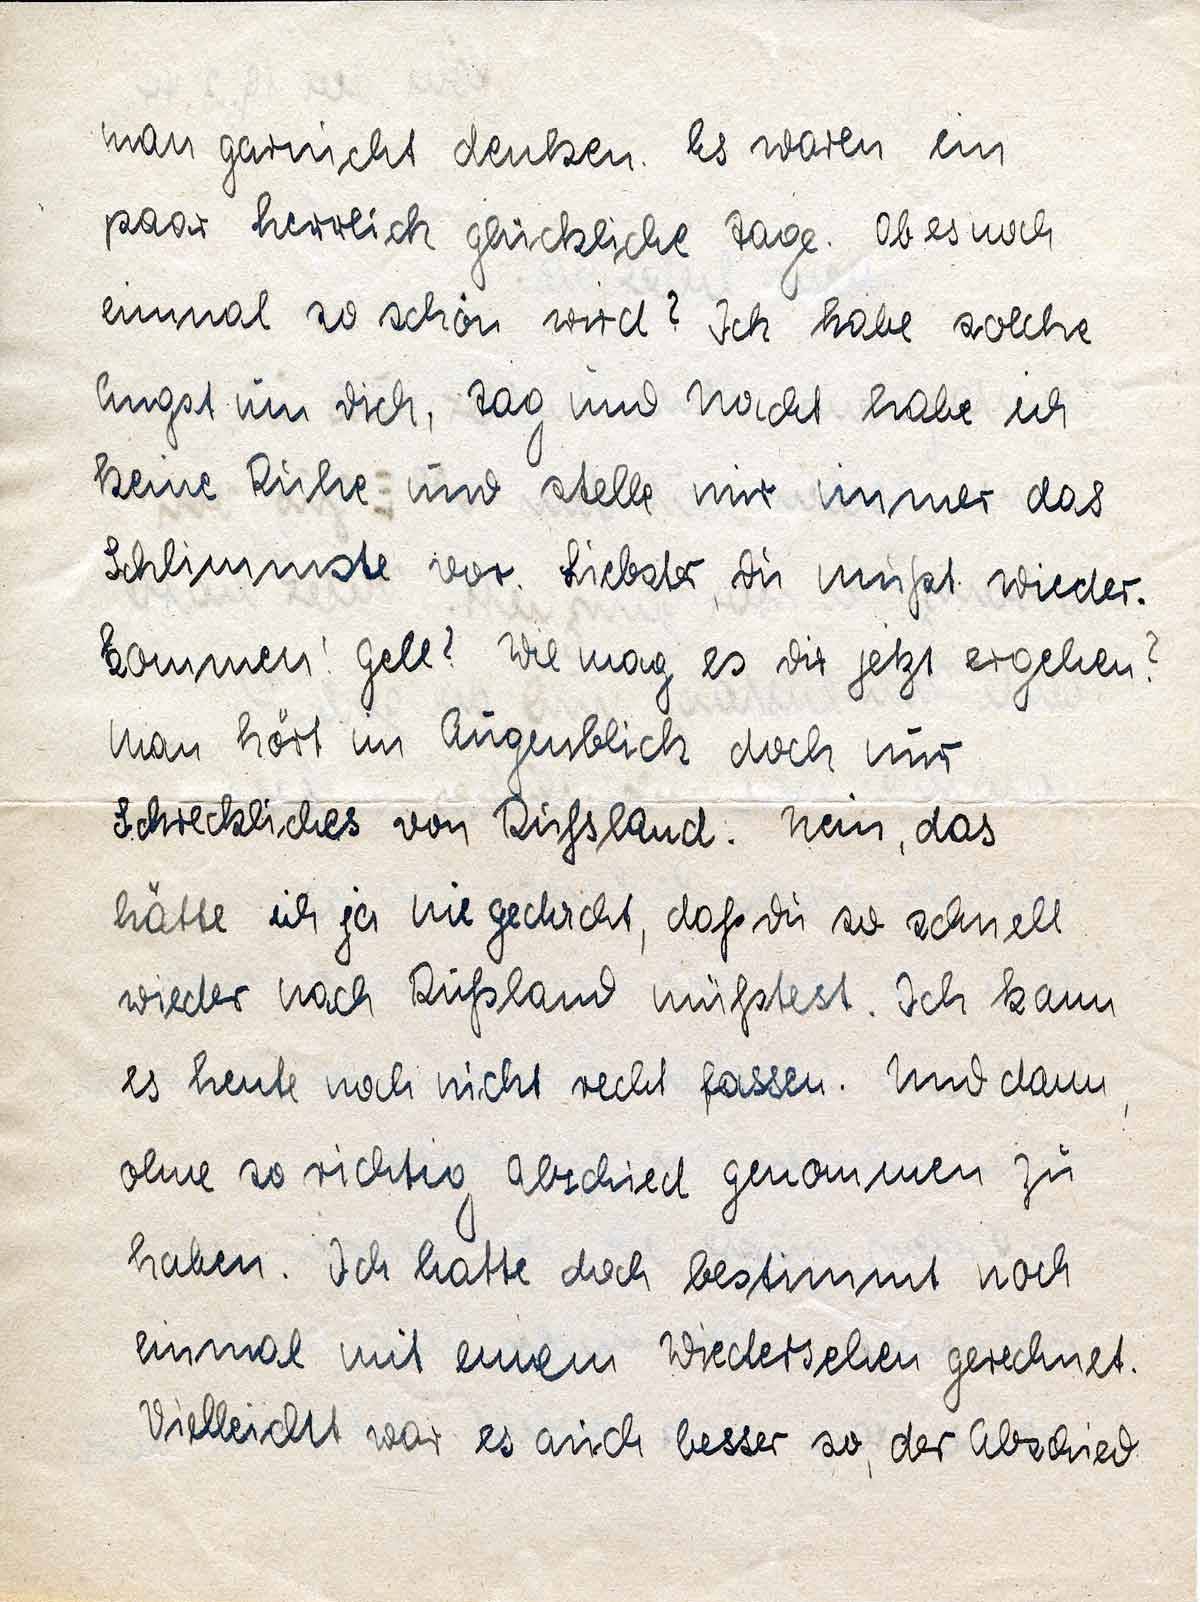 man garnicht denken. Es waren ein
paar herrlich glückliche Tage. Ob es noch
einmal so schön wird? Ich habe solche
Angst um Dich, Tag und Nacht habe ich
keine Ruhe und stelle mir immer das
Schlimmste vor. Liebster, Du mußt wieder-
kommen! Gell? Wie mag es Dir jetzt ergehen?
Man hört im Augenblick doch nur
Schreckliches von Rußland. Nein, das
hätte ich ja nie gedacht, daß Du so schnell
wieder nach Rußland müßtest. Ich kann
es heute noch nicht recht fassen. Und dann,
ohne so richtig Abschied genommen zu
haben. Ich hatte doch bestimmt noch
einmal mit einem Wiedersehen gerechnet.
Vielleicht war es auch besser so, der Abschied